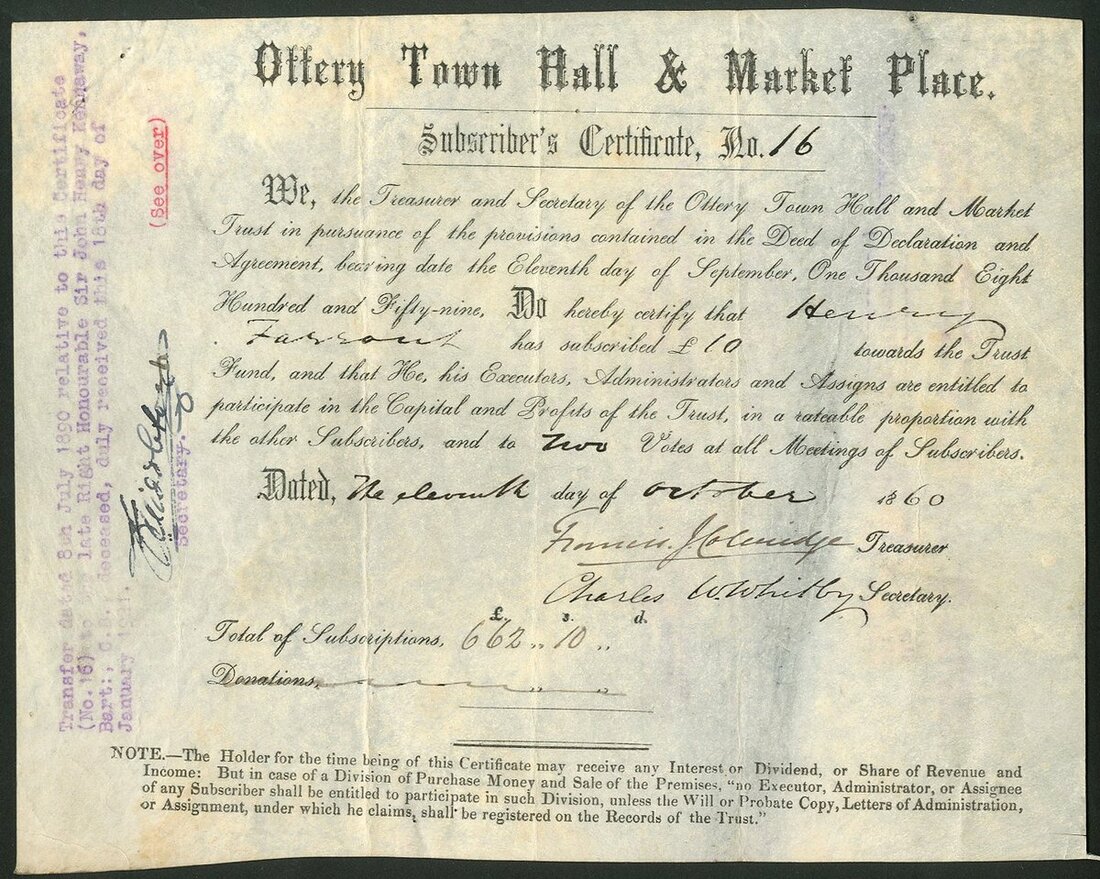 Ottery Town Hall & Market Place.
Subscriber's Certificate, No. 16
We, the Treasurer and Secretary of the Ottery Town Hall and Market
Trust in pursuance of the provisions contained in the Deed of Declaration and
Agreement, bearing date the Eleventh day of September, One Thousand Eight
Hundred and Fifty-nine, Do hereby certify that Henry
Farrant has subscribed £ 10 towards the Trust
Fund, and that He, his Executors, Administrators and Assigns are entitled to
participate in the Capital and Profits of the Trust, in a rateable proportion with
the other Subscribers, and to Two Votes at all Meetings of Subscribers.
Dated, The eleventh day of October 1860
Francis J Coleridge Treasurer
Charles W. Whitby Secretary.
£. s. d.
Total of Subscriptions, 662 .. 10 ..
Donations,
NOTE.—The Holder for the time being of this Certificate may receive any Interest or Dividend, or Share of Revenue and
Income: But in case of a Division of Purchase Money and Sale of the Premises, "no Executor, Administrator, or Assignee
of any Subscriber shall be entitled to participate in such Division, unless the Will or Probate Copy, Letters of Administration,
or Assignment, under which he claims, shall be registered on the Records of the Trust."
Transfer dated 8th July 1890 relative to this Certificate
(No.16) to late Right Honourable Sir John Henry Kennaway,
Bart:, C.B., deceased, duly received this 18th day of
January
Secretary.
(See over)